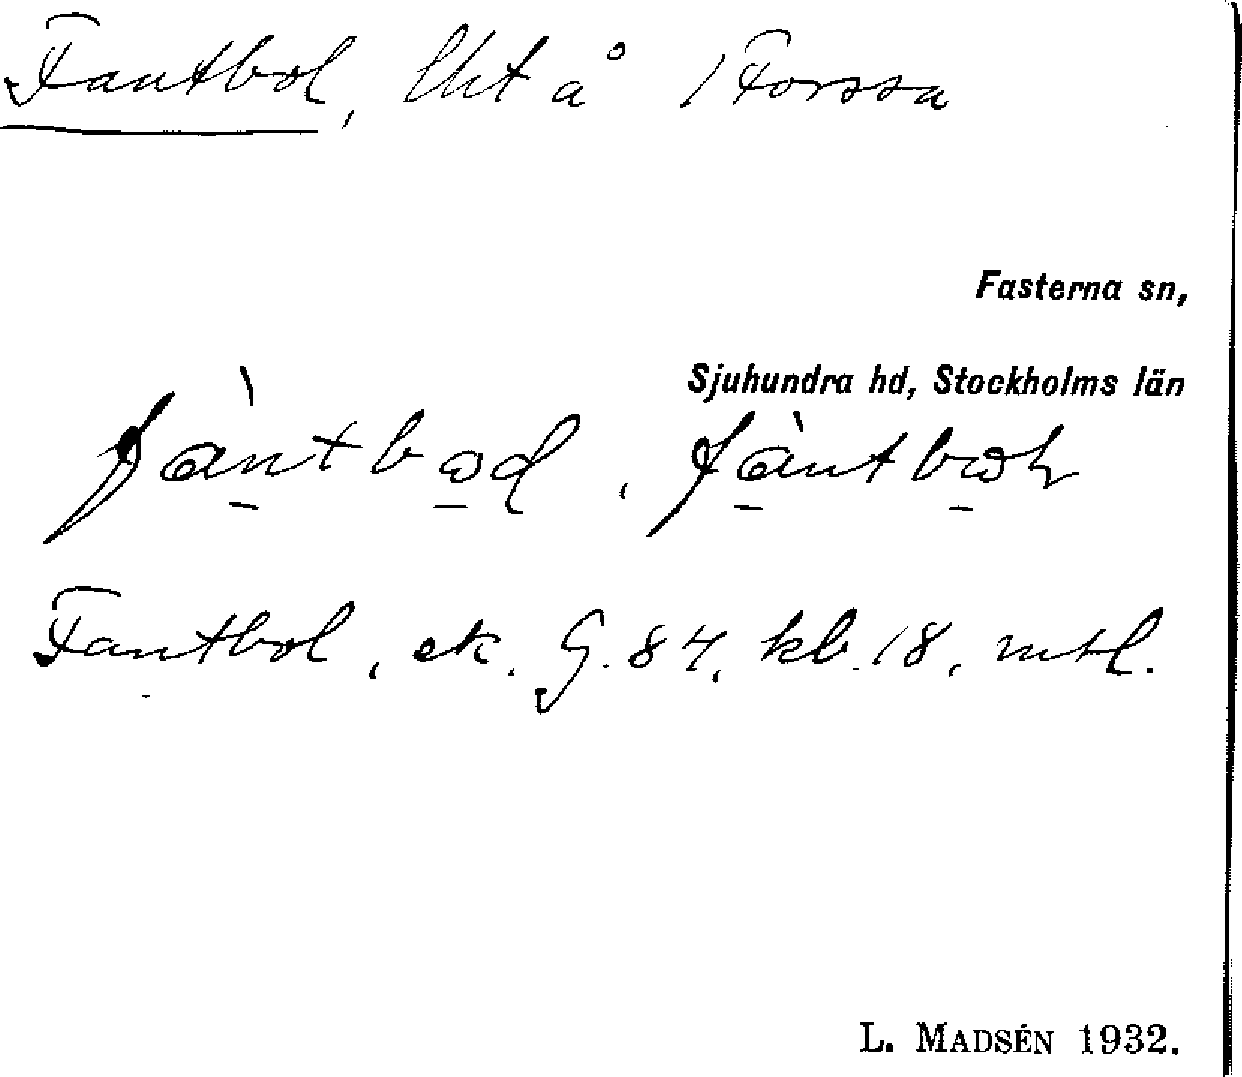 Fantbol, lht å 1 Forssa
Fasterna sn,
Sjuhundra hd, Stockholms län
Fantbol, ek. G. 84, kb. 18, mtl.
L. MADSÉN 1932.